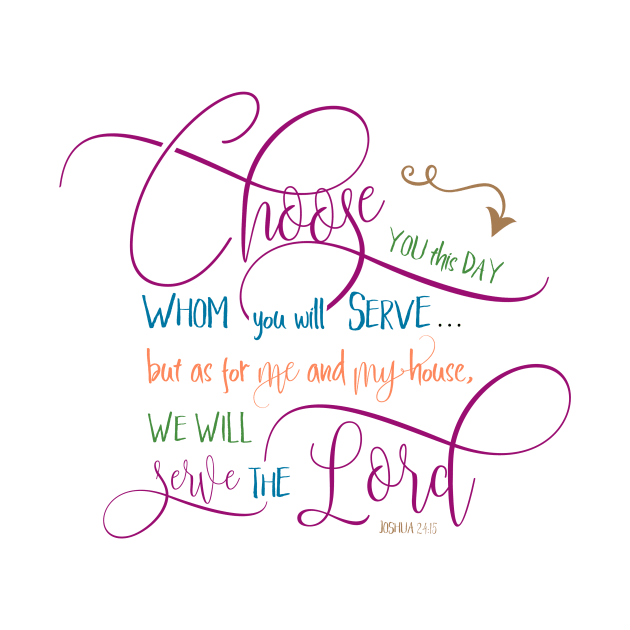 Choose
YOU this DAY
WHOM you will SERVE...
but as for me and my house,
WE WILL
serve THE Lord
JOSHUA 24:15